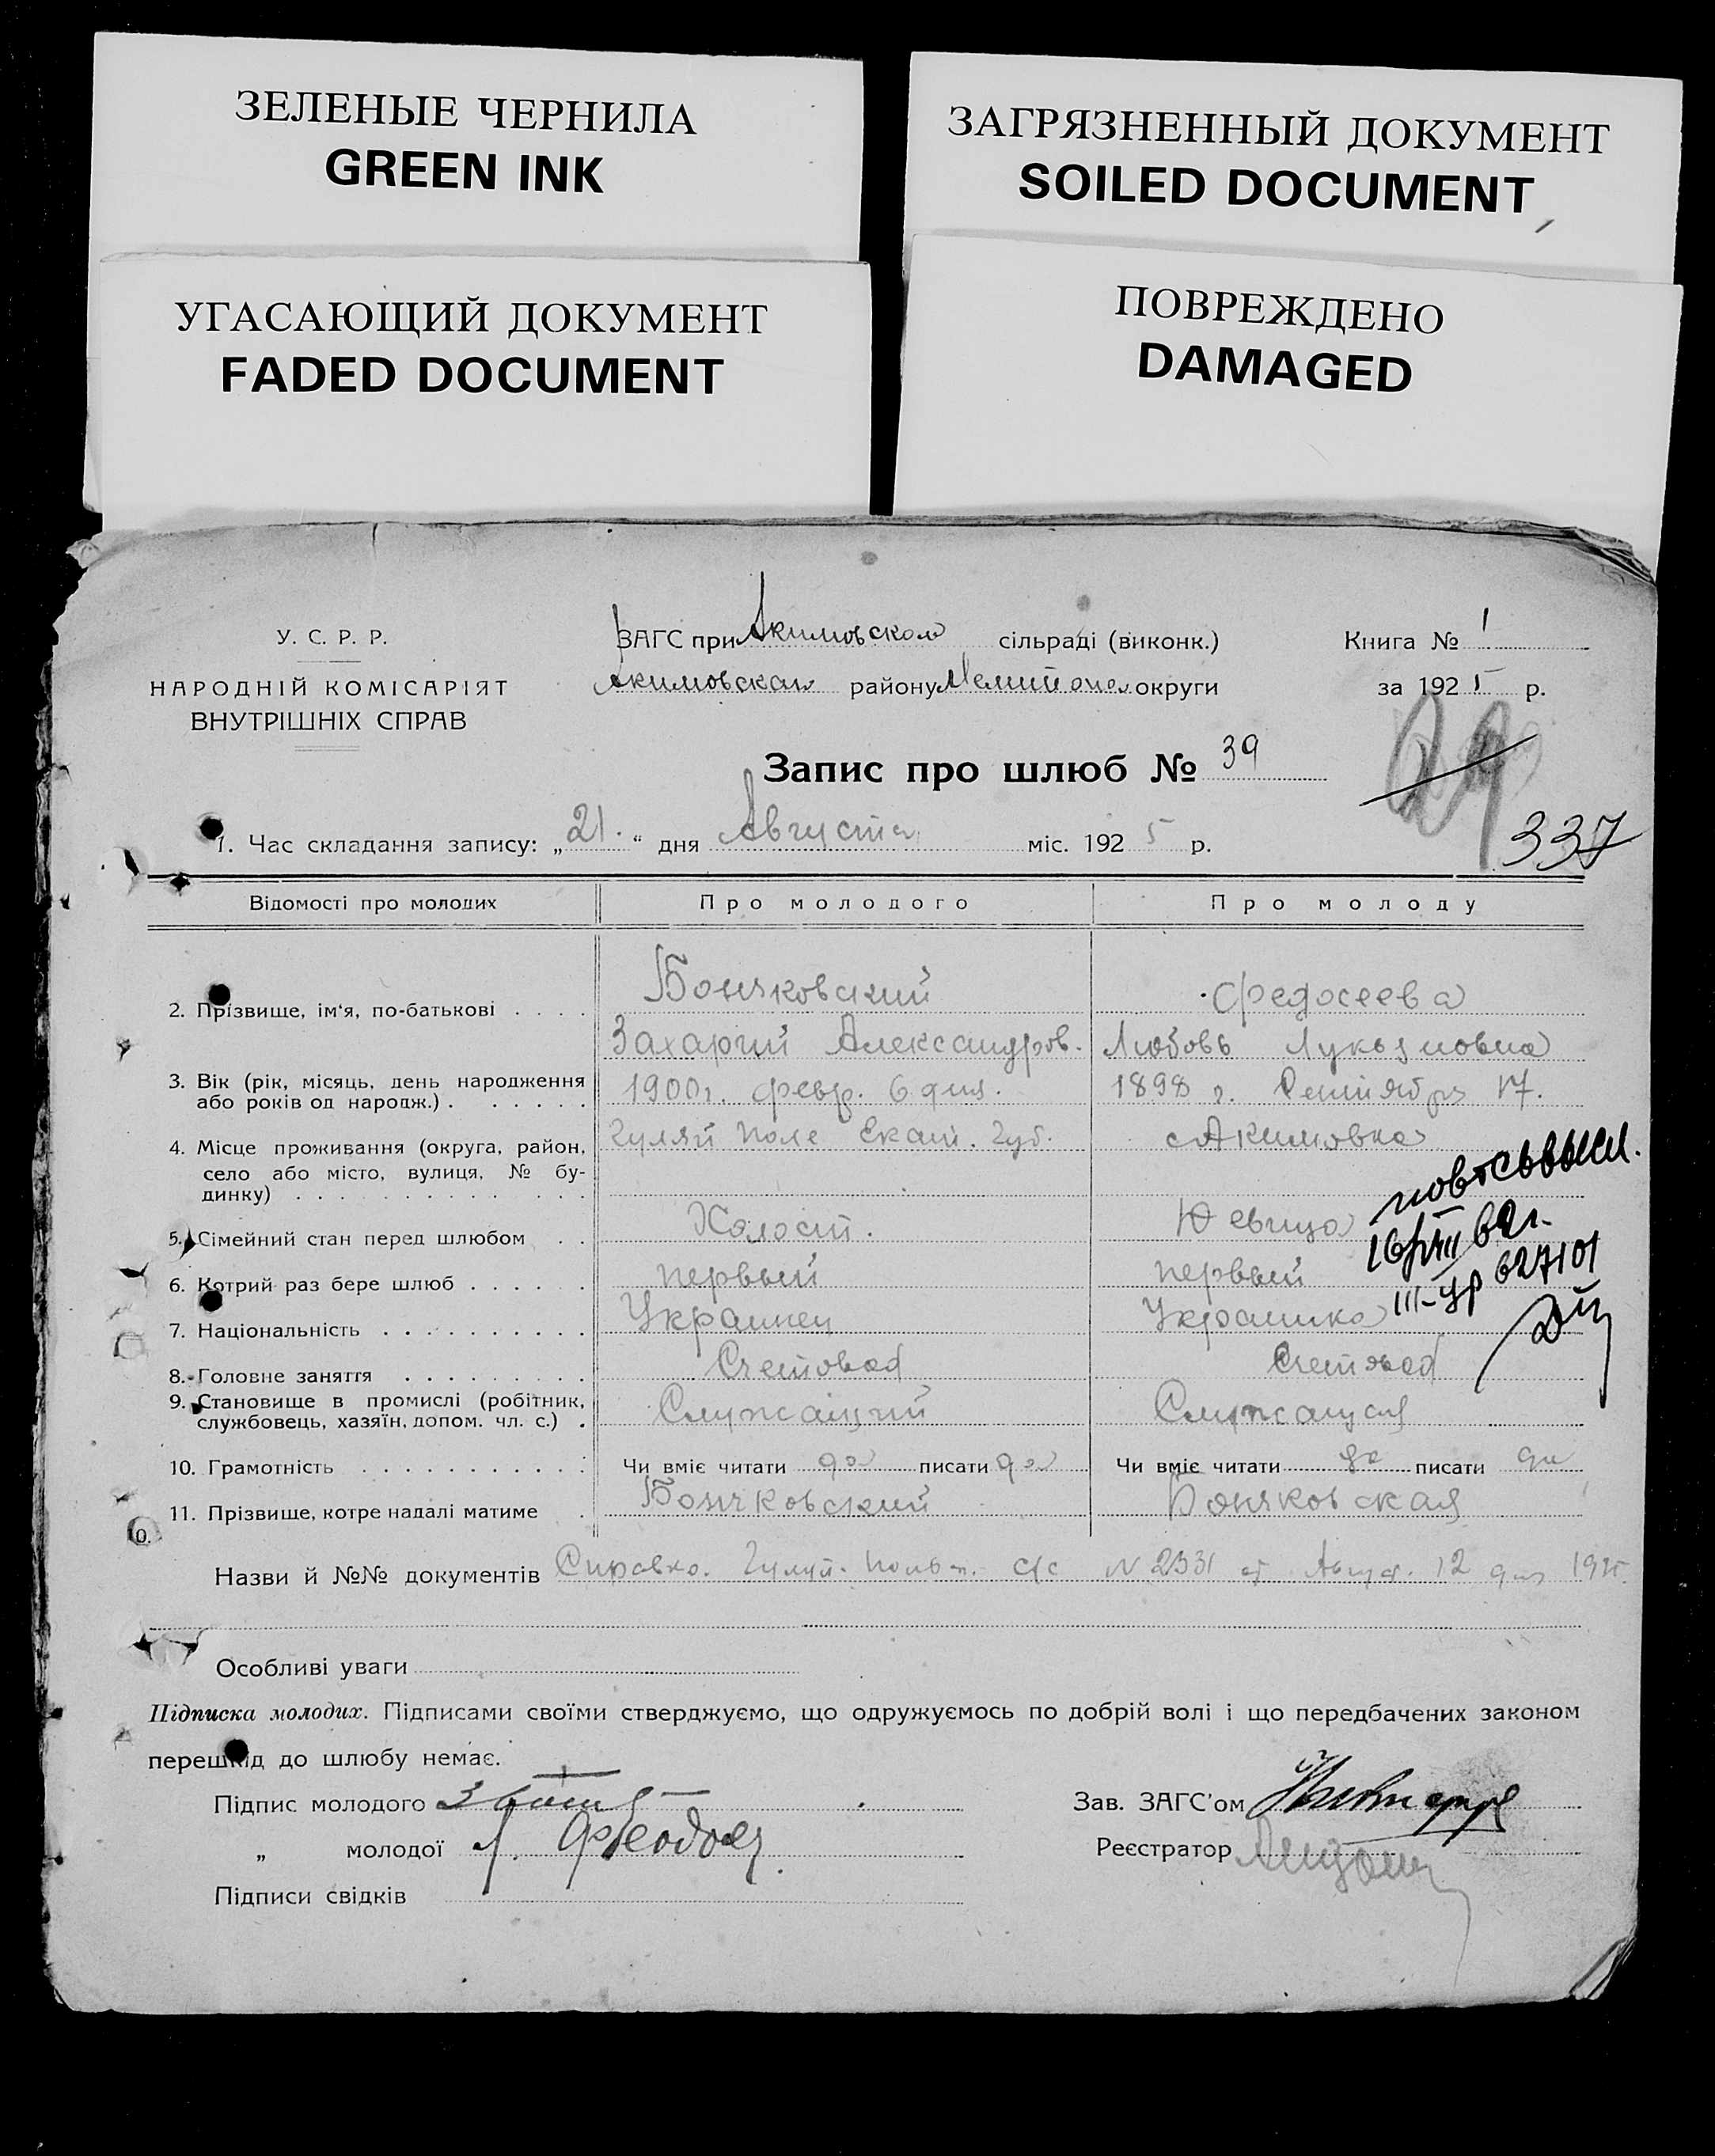 ЗЕЛЕНЫЕ ЧЕРНИЛА
GREEN INK
ЗАГРЯЗНЕННЫЙ ДОКУМЕНТ
SOILED DOCUMENT
УГАСАЮЩИЙ ДОКУМЕНТ
FADED DOCUMENT
ПОВРЕЖДЕНО
DAMAGED
У. С. Р. Р.
НАРОДНІЙ КОМІСАРІЯТ
ВНУТРІШНІХ СПРАВ
ЗАГС при Акимовском сільраді (виконк.)
Акимовскаго району Мелитопол округи
Книга № 1
за 1925 р.
Запис про шлюб № 39
29
337
1. Час складання запису: „21“ дня Августа міс. 1925 р.
Відомості про молодих Про молодого Про молоду
2. Прізвище, ім'я, по-батькові Бончковский Федосеева
Захарий Александров. Любовь Лукьяновна
3. Вік (рік, місяць, день народження або років од народж.) 1900г. февр. 6 дня. 1898 г. Сентября 17.
4. Місце проживання (округа, район, село або місто, вулиця, № будинку) Гуляй Поле Екат. Губ. с Акимовка
5. Сімейний стан перед шлюбом Холост. Девица
6. Котрий раз бере шлюб первый первый
7. Національність Украинец Украинка
8. Головне заняття Счетовод Счетовод
9. Становище в промислі (робітник, службовець, хазяїн, допом. чл. с.) Служащий Служащая
10. Грамотність Чи вміє читати да писати да Чи вміє читати да писати да
11. Прізвище, котре надалі матиме Бончковский Бончковская
Назви й №№ документів Справка. Гуляй-Польск. с/с N 2331 от Август. 12 дня 1925г.
Особливі уваги
Підписка молодих. Підписами своїми стверджуємо, що одружуємось по добрій волі і що передбачених законом
перешкід до шлюбу немає.
Підпис молодого
„ молодої Л. Феодос
Підписи свідків
Зав. ЗАГС'ом
Реєстратор